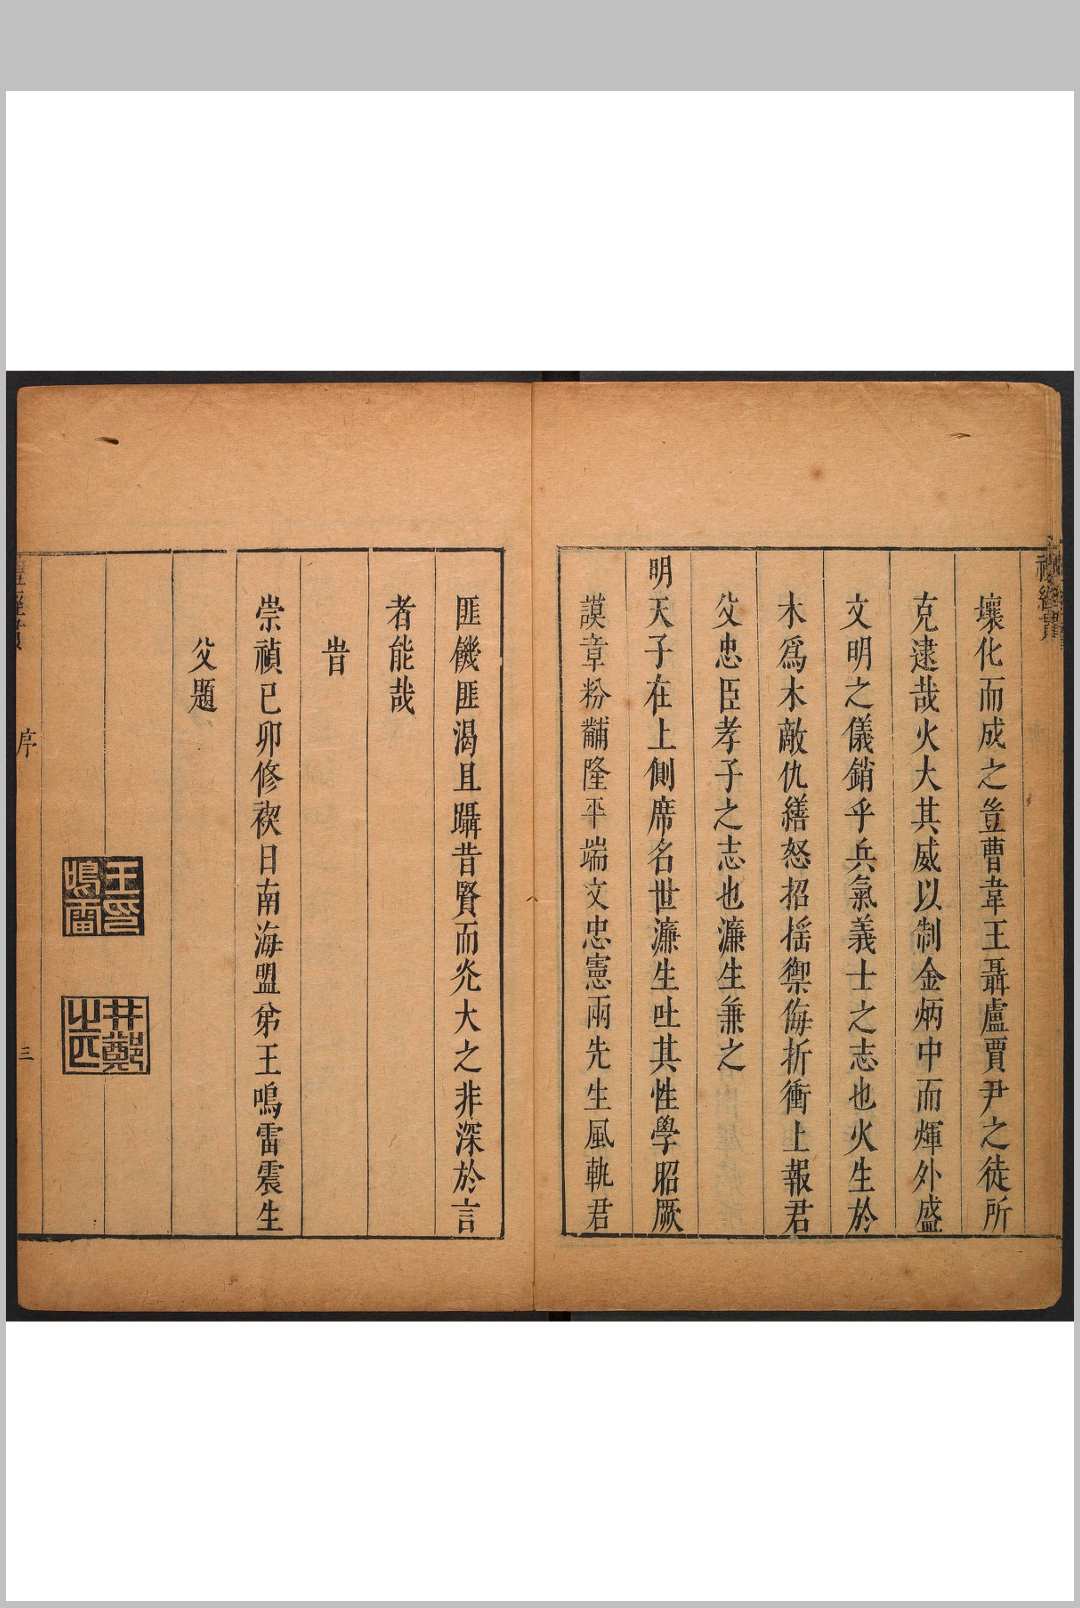 壤化而成之豈曹韋王聶盧賈尹之徒所
克逮哉火大其威以制金炳中而煇外盛
文明之儀銷乎兵氣義士之志也火生於
木爲木敵仇繕怒招搖禦侮折衝上報君
父忠臣孝子之志也濂生兼之
明天子在上側席名世濂生吐其性學昭厥
謨章粉黼隆平端文忠憲兩先生風軌君
匪饑匪渴且躡昔賢而光大之非深於言
者能哉
旹
崇禎己卯修禊日南海盟弟王鳴雷震生
父題
序
三
王印鳴雷